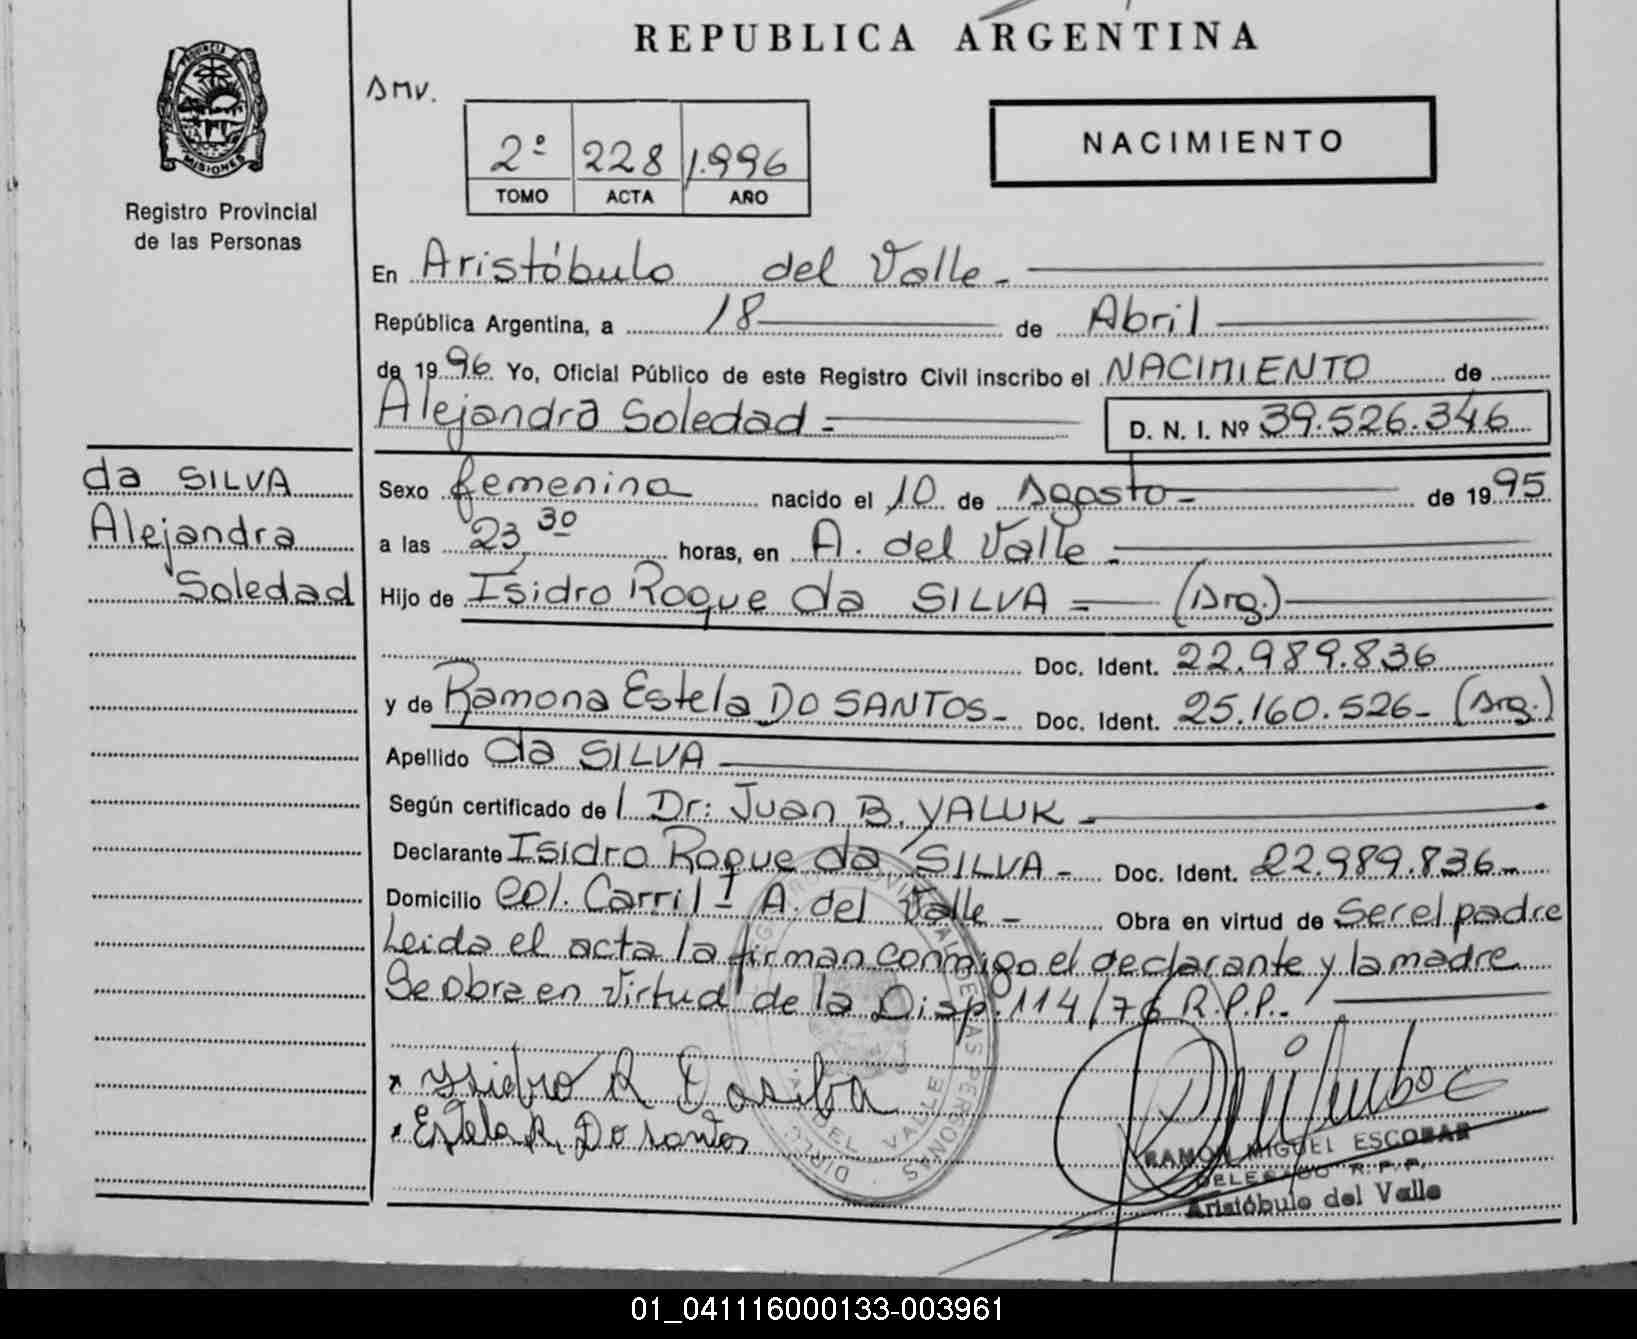 REPUBLICA ARGENTINA
PROVINCIA DE
MISIONES
Registro Provincial
de las Personas
2º 228 1.996
TOMO ACTA AÑO
NACIMIENTO
En Aristóbulo del Valle -
República Argentina, a 18 de Abril
de 1996 Yo, Oficial Público de este Registro Civil inscribo el NACIMIENTO de
Alejandra Soledad - D. N. I. Nº 39.526.346
da SILVA
Alejandra
Soledad
Sexo femenina nacido el 10 de Agosto - de 1995
a las 23,30 horas, en A. del Valle -
Hijo de Isidro Roque da SILVA = (Arg.)
Doc. Ident. 22.989.836
y de Ramona Estela DO SANTOS - Doc. Ident. 25.160.526 - (Arg.)
Apellido da SILVA
Según certificado de l Dr: Juan B. YALUK -
Declarante Isidro Roque da SILVA - Doc. Ident. 22.989.836 -
Domicilio Col. Carril - A. del Valle - Obra en virtud de Ser el padre
Leida el acta la firman conmigo el declarante y la madre
Se obra en virtud de la Disp. 114/76 R.P.P. -
Isidro R Dasilva
Estela R. Do santos
A. DEL VALLE
RAMON MIGUEL ESCOBAR
DELEGADO R.P.P.
Aristóbulo del Valle
01_041116000133-003961